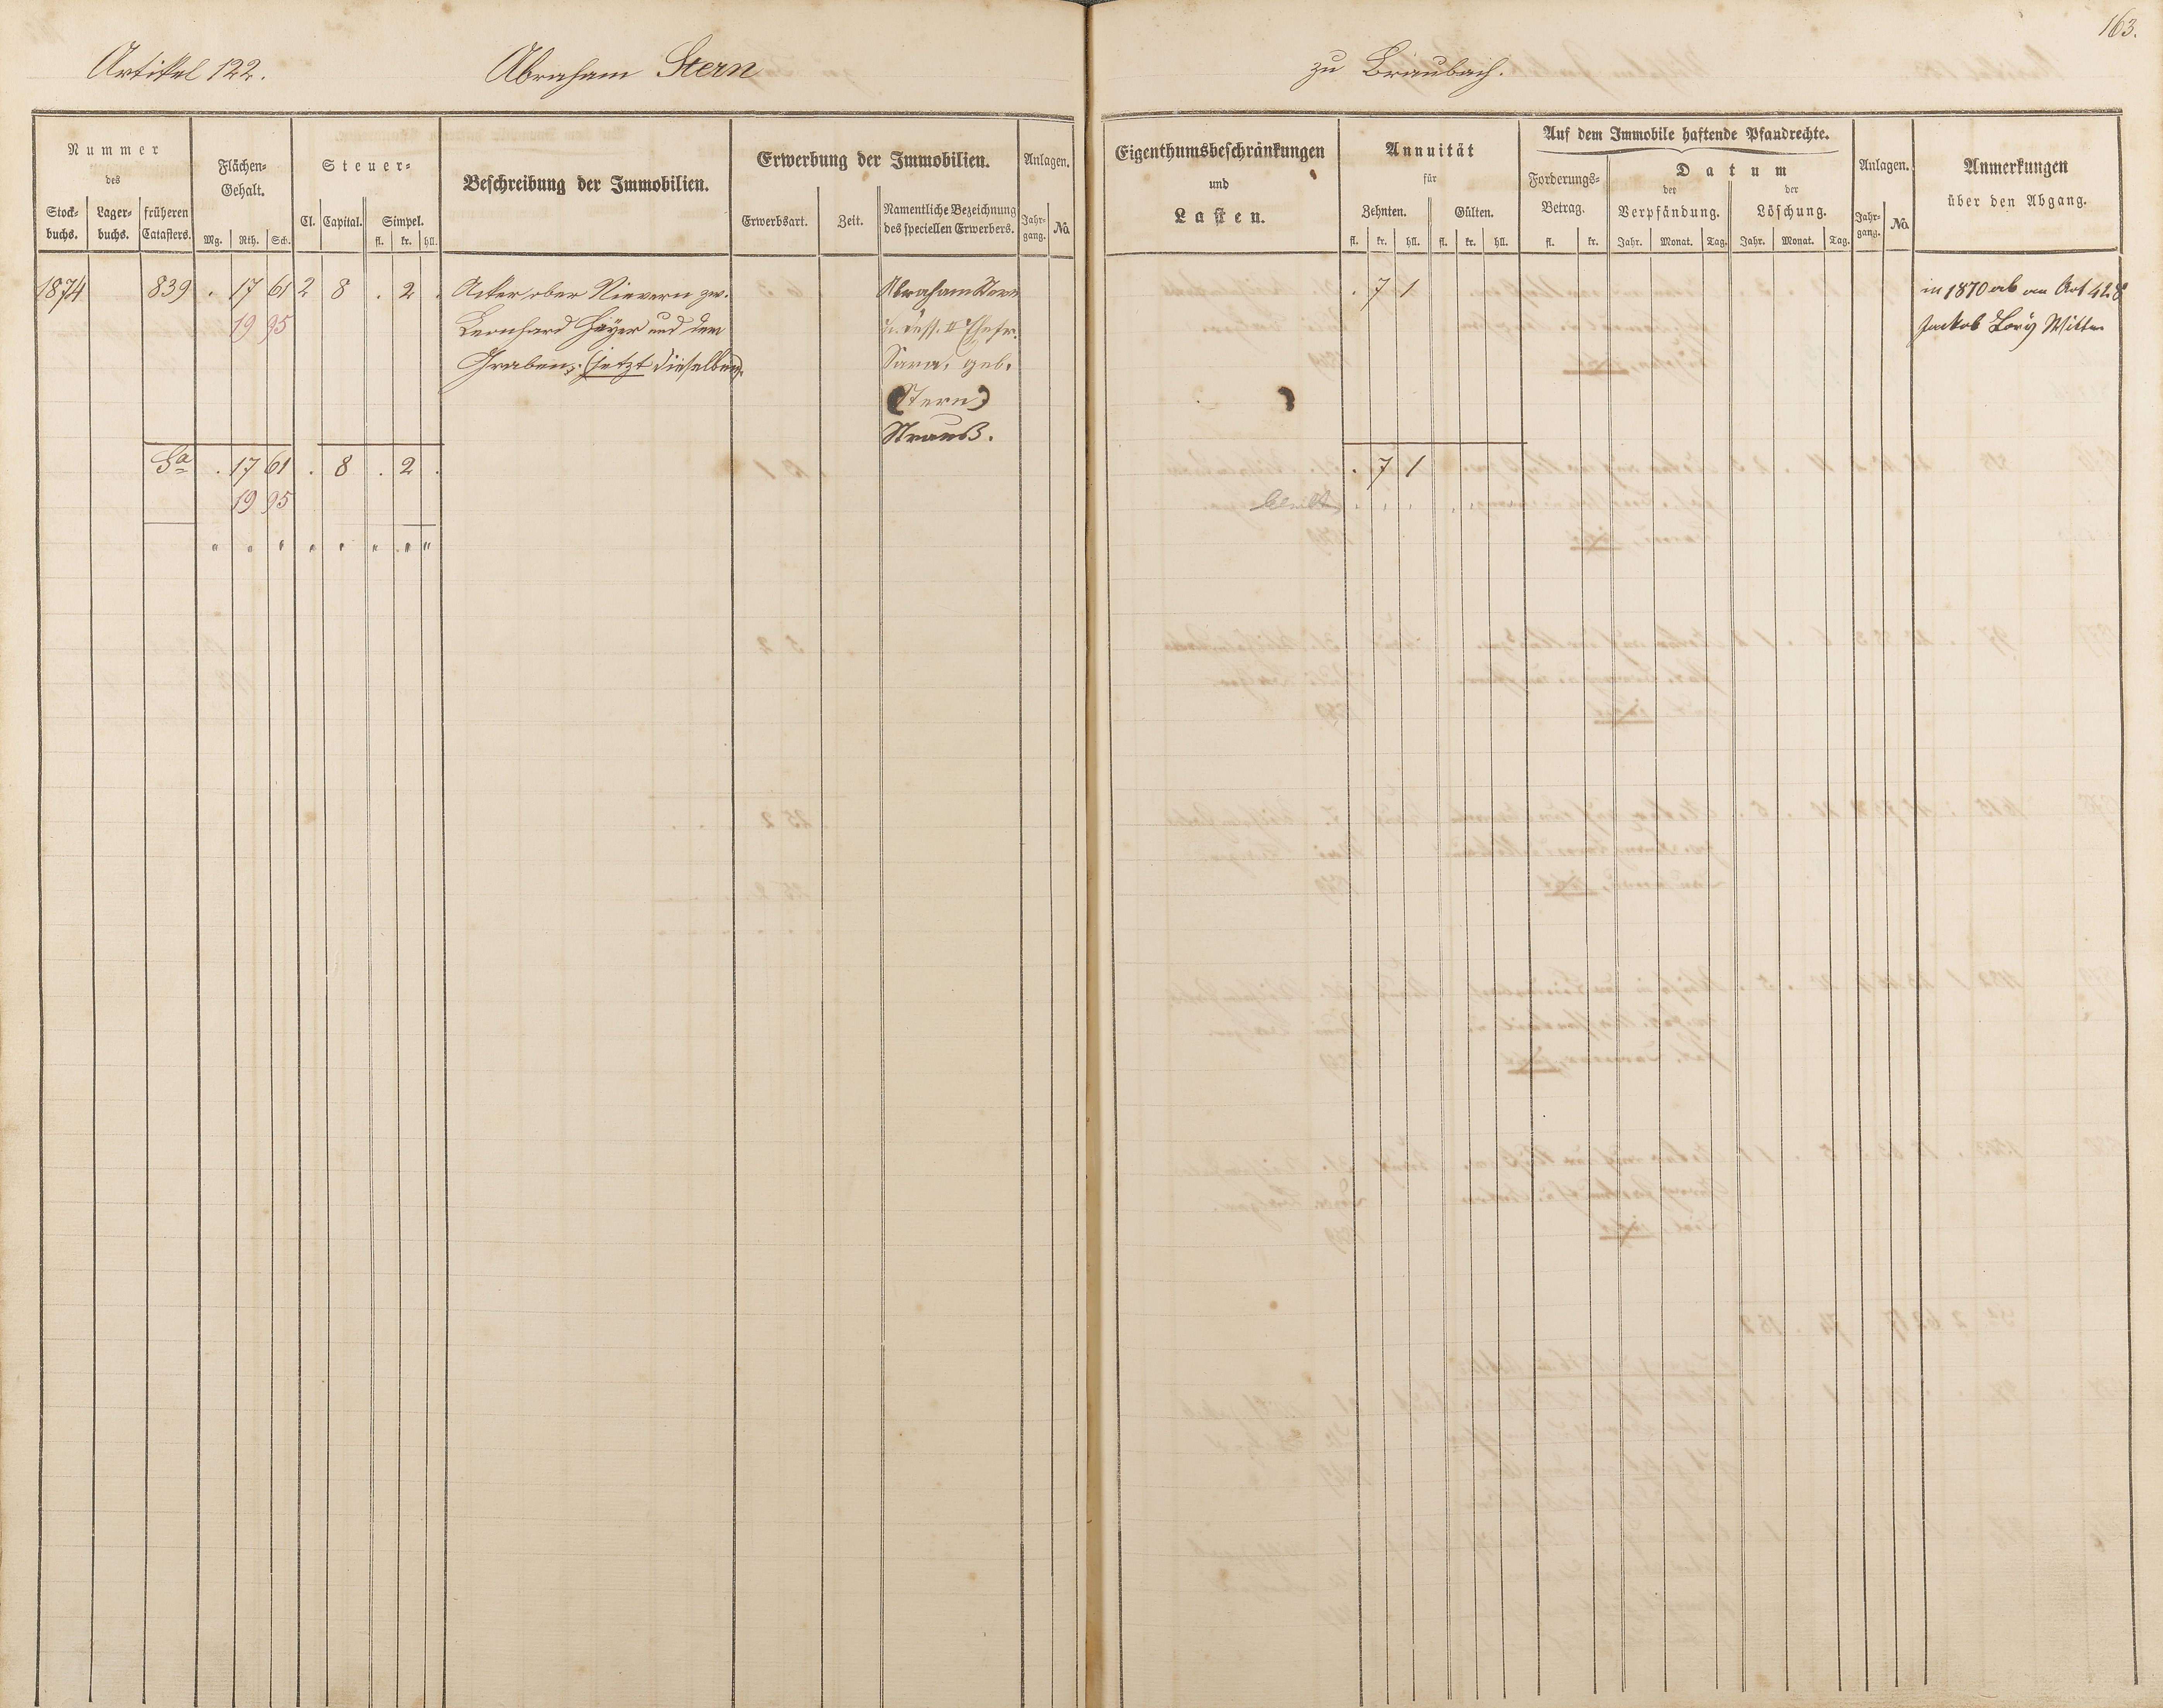 163.
Artikel 122.
Abraham Stern
zu Braubach.
Nummer
des
Stock-
buchs.
Lager-
buchs.
früheren
Catasters.
Flächen-
Gehalt.
Mg. Rth. Sch.
Steuer-
Cl. Capital. Simpel.
fl. kr. hll.
Beschreibung der Immobilien.
Erwerbung der Immobilien.
Erwerbsart. Zeit.
Namentliche Bezeichnung
des speciellen Erwerbers.
Anlagen.
Jahr-
gang. No.
Eigenthumsbeschränkungen
und
Lasten.
Annuität
für
Zehnten. Gülten.
fl. kr. hll. fl. kr. hll.
Auf dem Immobile haftende Pfandrechte.
Forderungs-
Betrag.
fl. kr.
Datum
der der
Verpfändung. Löschung.
Jahr. Monat. Tag. Jahr. Monat. Tag.
Anlagen.
Jahr-
gang. No.
Anmerkungen
über den Abgang.
1874 839 . 17 61 2 8 . 2 .
19 95
Acker ober Nievern zw.
Leonhard Heyer und der
Graben; (jetzt dieselben)
Abraham Stern
u. dess. II Ehefr.
Sara, geb.
(Stern)
Strauß.
. 7 1
in 1870 ab an Art 428
Jackob Lory Witter
Sa . 17 61 . 8 . 2 .
19 95
. 7 1
" " " " " " " "